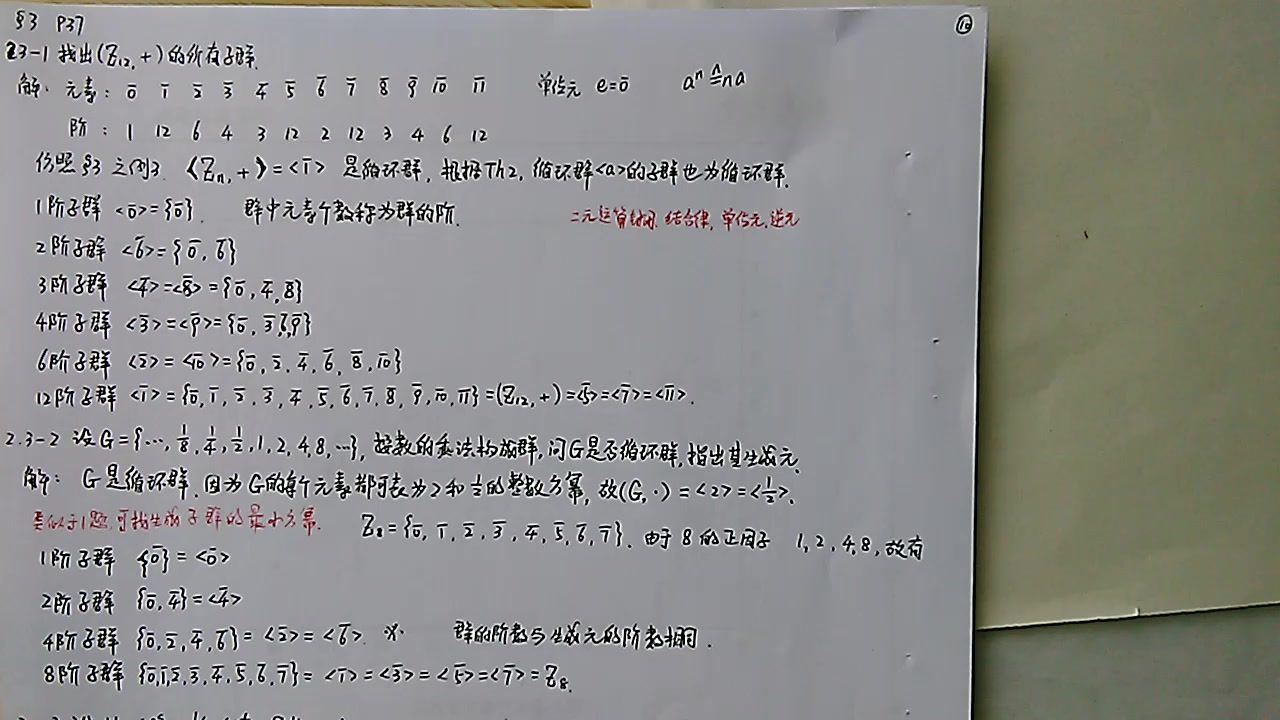 §3 P37 ⑩
2.3-1 找出(Z₁₂, +)的所有子群.
解: 元素: 0̄ 1̄ 2̄ 3̄ 4̄ 5̄ 6̄ 7̄ 8̄ 9̄ 1̄0̄ 1̄1̄ 单位元 e=0̄ aⁿ ≜ na
阶: 1 12 6 4 3 12 2 12 3 4 6 12
仿照§3之例3. (Zₙ, +)=<1̄> 是循环群, 根据Th2, 循环群<a>的子群也为循环群.
1阶子群 <0̄>={0̄}. 群中元素个数称为群的阶. 二元运算封闭, 结合律, 单位元, 逆元
2阶子群 <6̄>={0̄, 6̄}
3阶子群 <4̄>=<8̄>={0̄, 4̄, 8̄}
4阶子群 <3̄>=<9̄>={0̄, 3̄, 6̄, 9̄}
6阶子群 <2̄>=<1̄0̄>={0̄, 2̄, 4̄, 6̄, 8̄, 1̄0̄}
12阶子群 <1̄>={0̄, 1̄, 2̄, 3̄, 4̄, 5̄, 6̄, 7̄, 8̄, 9̄, 1̄0̄, 1̄1̄}=(Z₁₂, +)=<5̄>=<7̄>=<1̄1̄>.
2.3-2 设G={⋯, 1/8, 1/4, 1/2, 1, 2, 4, 8, ⋯}, 按数的乘法构成群, 问G是否循环群, 指出其生成元.
解: G是循环群. 因为G的每个元素都可表为2和1/2的整数方幂, 故(G, ·)=<2>=<1/2>.
类似于1题 可找生成子群的最小方幂.
Z₈={0̄, 1̄, 2̄, 3̄, 4̄, 5̄, 6̄, 7̄}. 由于8的正因子 1, 2, 4, 8, 故有
1阶子群 {0̄}=<0̄>
2阶子群 {0̄, 4̄}=<4̄>
4阶子群 {0̄, 2̄, 4̄, 6̄}=<2̄>=<6̄>. ※ 群的阶数与生成元的阶数相同.
8阶子群 {0̄, 1̄, 2̄, 3̄, 4̄, 5̄, 6̄, 7̄}=<1̄>=<3̄>=<5̄>=<7̄>=Z₈.